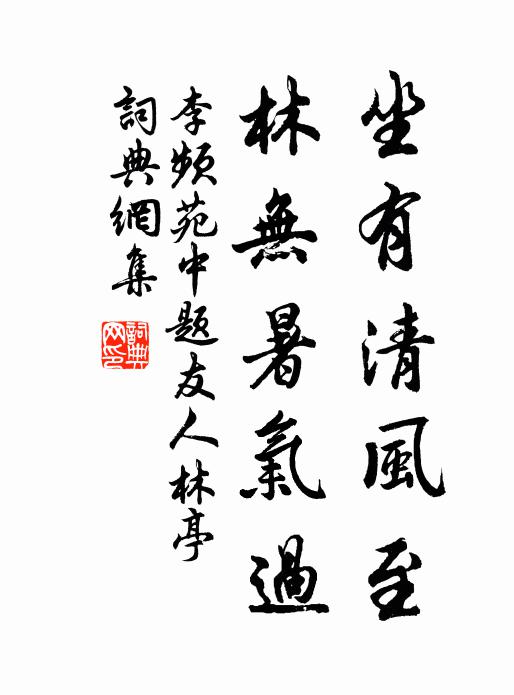 坐有清風至
林無暑氣過
李頻苑中題友人林亭
詞典網集
詞典网印